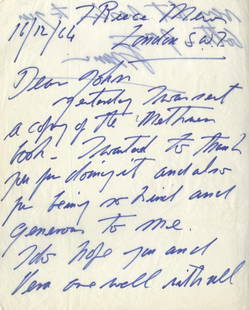 7 Reece Mews
16/12/64 London S.W.7.
Dear John
yesterday I was sent
a copy of the Methuen
book - I wanted to thank
you for doing it and also
for being so kind and
generous to me.
I do hope you and
Vera are well with all